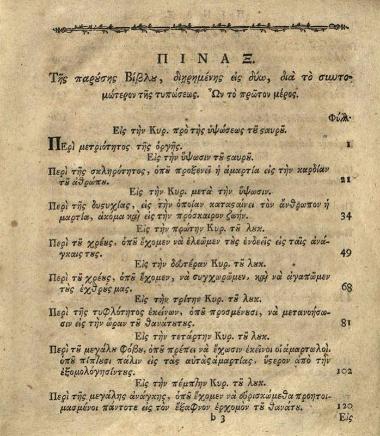 ΠΙΝΑΞ
Τῆς παρȣ́σης Βίβλȣ, διῃρημένης εἰς δύω, διὰ τὸ συντο-
μώτερον τῆς τυπώσεως. Ὧν τὸ πρῶτον μέρος.
Φύλ.
Εἰς τὴν Κυρ. πρὸ τῆς ὑψώσεως τȣ͂ ϛαυρȣ͂.
Περὶ μετριότητος τῆς ὀργῆς. 1
Εἰς τὴν ὕψωσιν τȣ͂ ϛαυρȣ͂.
Περὶ τῆς σκληρότητος, ὁπȣ̂ προξενεῖ ἡ ἁμαρτία εἰς τὴν καρδίαν
τȣ͂ ἀνθρώπȣ. 21
Εἰς τὴν Κυρ. μετὰ τὴν ὕψωσιν.
Περὶ τῆς δυςυχίας, εἰς τὴν ὁποίαν καταςαίνει τὸν ἄνθρωπον ἡ
μαρτία, ἀκόμα καὶ εἰς τὴν πρόσκαιρον ζωήν. 34
Εἰς τὴν πρώτην Κυρ. τȣ͂ λυκ.
Περὶ τȣ͂ χρέȣς, ὁπȣ̂ ἔχομεν νὰ ἐλεῶμεν τȣ̀ς ἐνδεεῖς εἰς ταῖς ἀνά-
γκαις τȣς. 49
Εἰς τὴν δευτέραν Κυρ. τȣ͂ λυκ.
Περὶ τȣ͂ χρέȣς, ὁπȣ̂ ἔχομεν, νὰ συγχωρῶμεν, καὶ νὰ ἀγαπῶμεν
τȣ̀ς ἐχθρȣ́ς μας. 68
Εἰς τὴν τρίτην Κυρ. τȣ͂ λυκ.
Περὶ τῆς τυφλότητος ἐκείνων, ὁπȣ̂ προσμένȣσι, νὰ μετανοήσω-
σιν εἰς τὴν ὥραν τȣ͂ θανάτȣ τȣς. 81
Εἰς τὴν τετάρτην Κυρ. τȣ͂ λυκ.
Περὶ τȣ͂ μεγάλȣ φόβȣ, ὁπȣ̂ πρέπει νὰ ἔχωσιν ἐκεῖνοι οἱ ἁμαρτωλοὶ,
ὁπȣ̂ πίπτȣσι πάλιν εἰς ταῖς αὐταῖς ἁμαρτίας, ὕςερον ἀπὸ τὴν
ἐξομολόγησίν τȣς. 102
Εἰς τὴν πέμπτην Κυρ. τȣ͂ λυκ.
Περὶ τῆς μεγάλης ἀνάγκης, ὁπȣ̂ ἔχομεν νὰ εὑρισκώμεθα προητοι-
μασμένοι πάντοτε εἰς τὸν ἔξαφνον ἐρχομὸν τȣ͂ θανάτȣ. 120
b 3 Εἰς